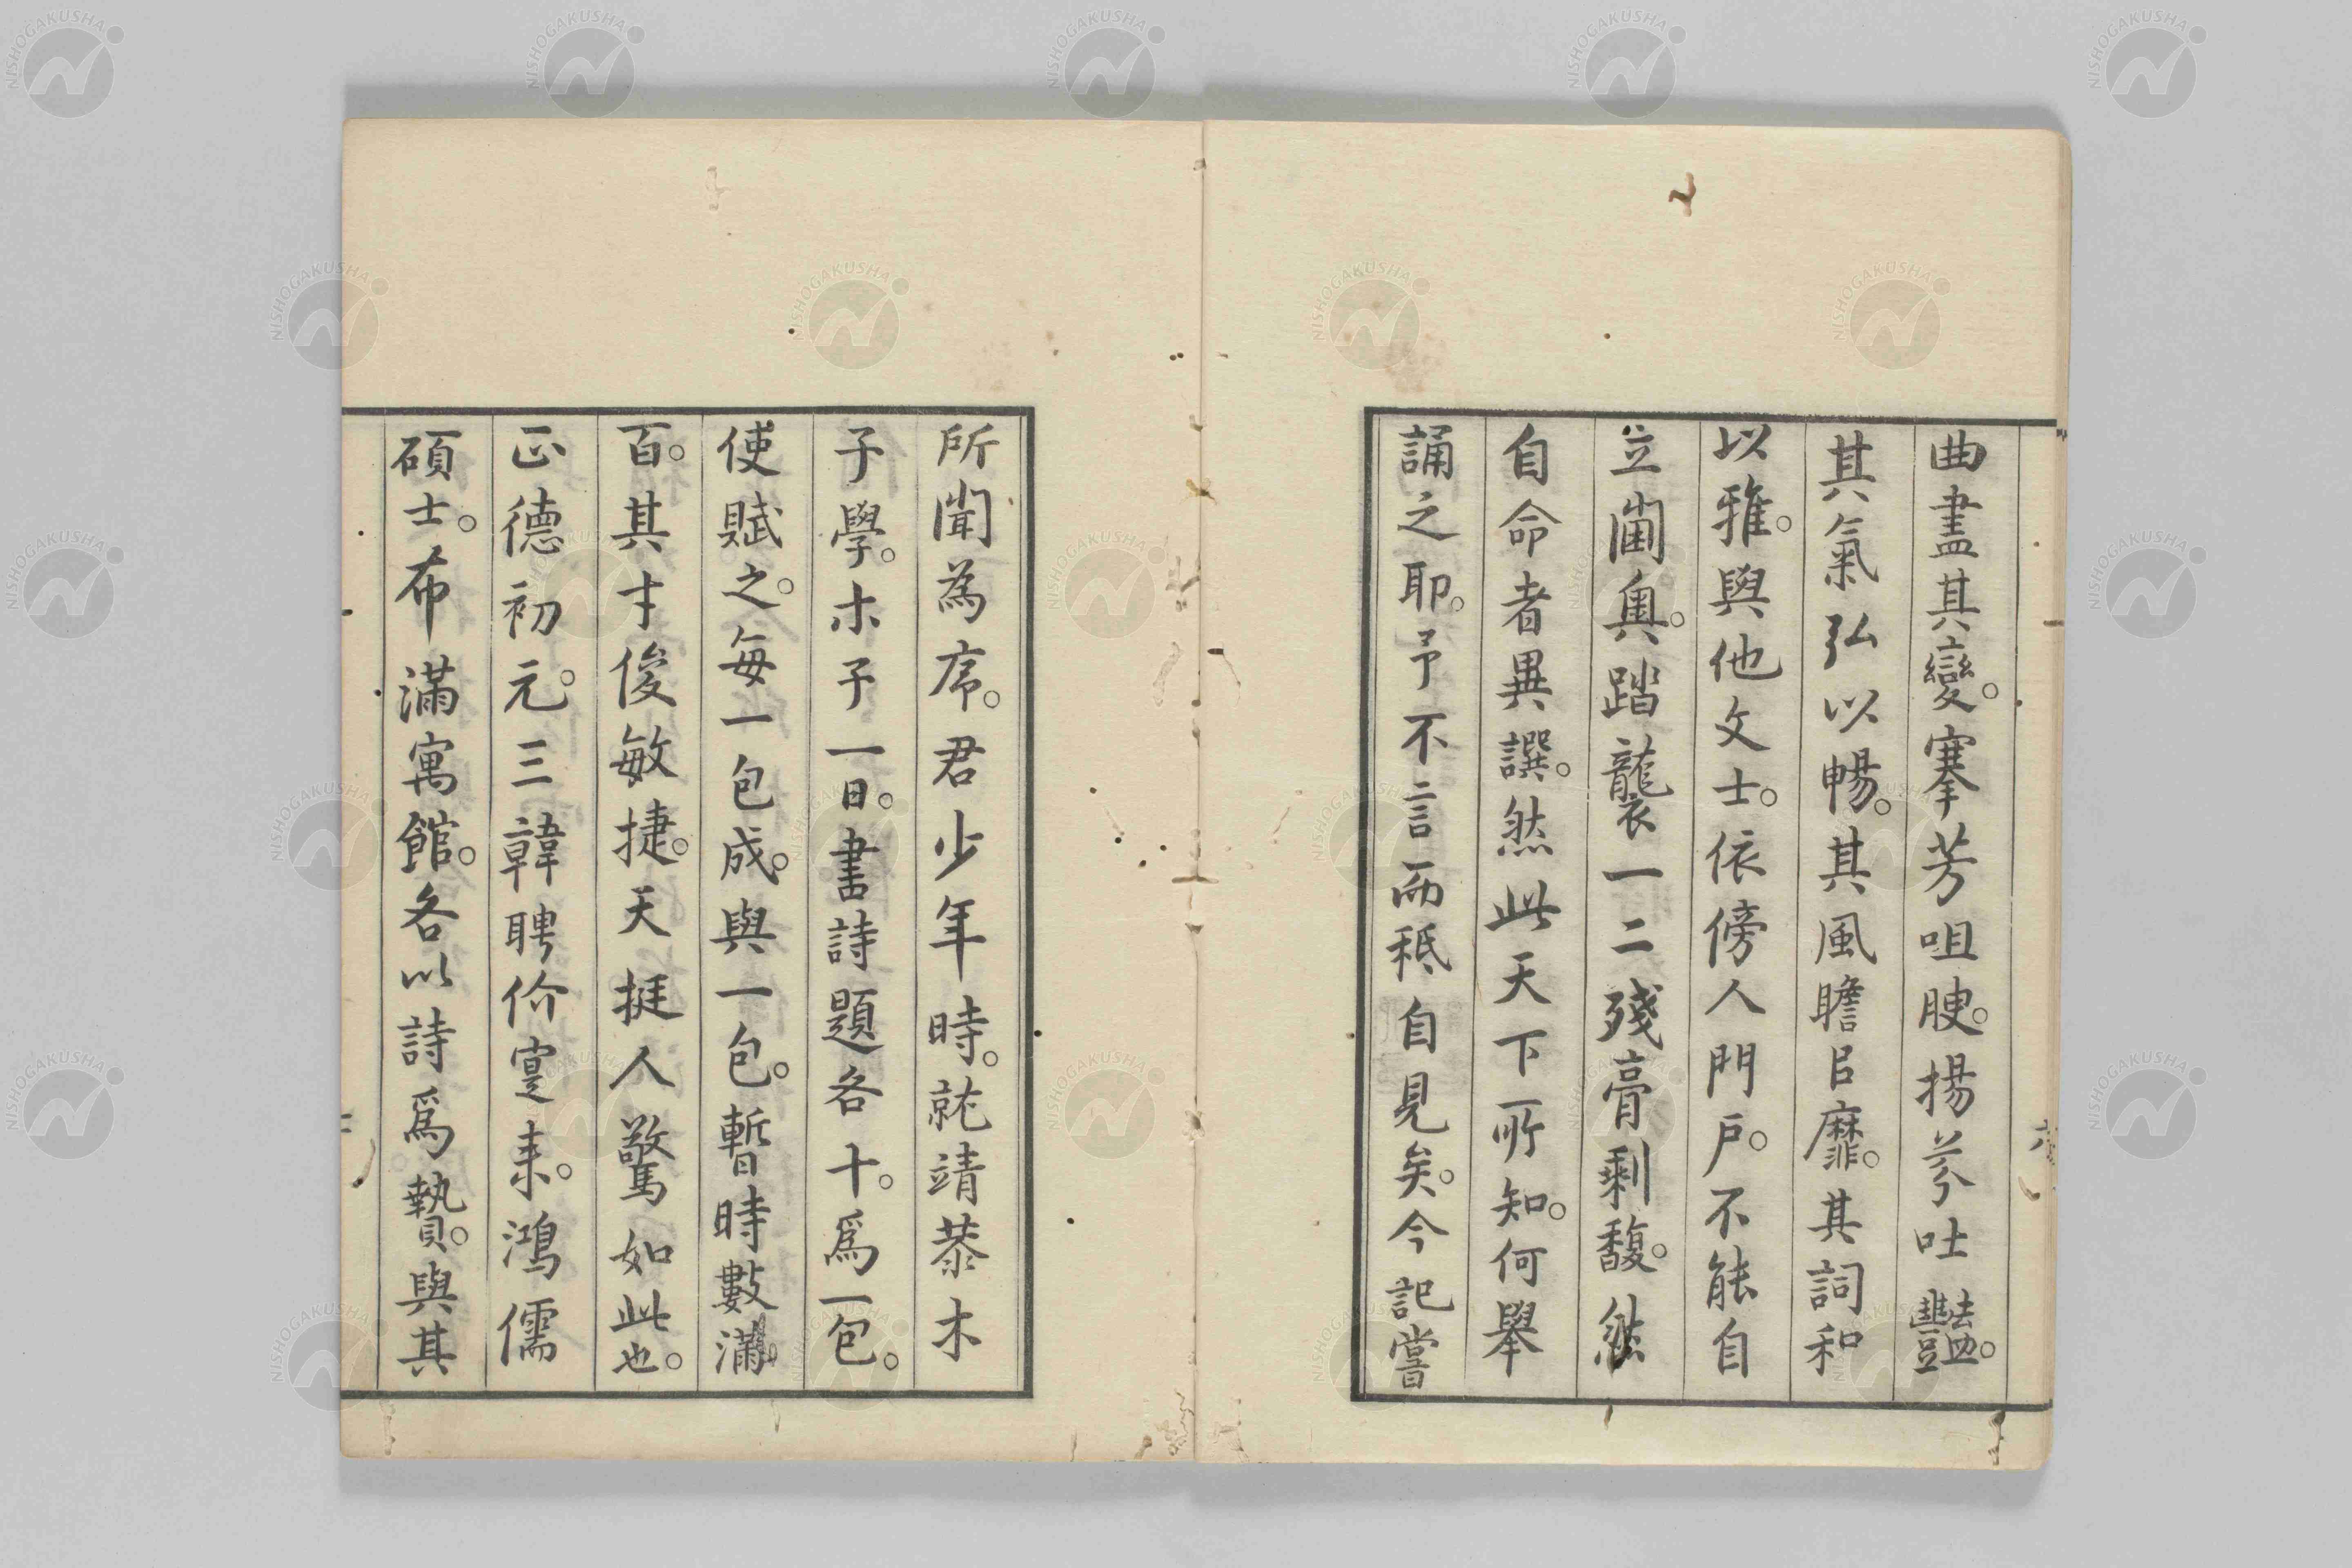 曲盡其變。搴芳咀腴。揚芬吐豔。
其氣弘以暢。其風瞻㠯靡。其詞和
以雅。與他文士。依傍人門戶。不能自
立閫奧。踏襲一二殘膏剩馥。㷼
自命者異譔。然此天下所知。何舉
誦之耶。予不言而秪自見矣。今記嘗
所聞為序。君少年時。就靖恭木
子學。木子一日。書詩題各十。爲一包。
使賦之。每一包成。與一包。暫時數滿
百。其才俊敏捷。天挺人驚如此也。
正德初元。三韓聘价寔来。鴻儒
碩士。布滿寓館。各以詩爲贄。與其
NISHOGAKUSHA